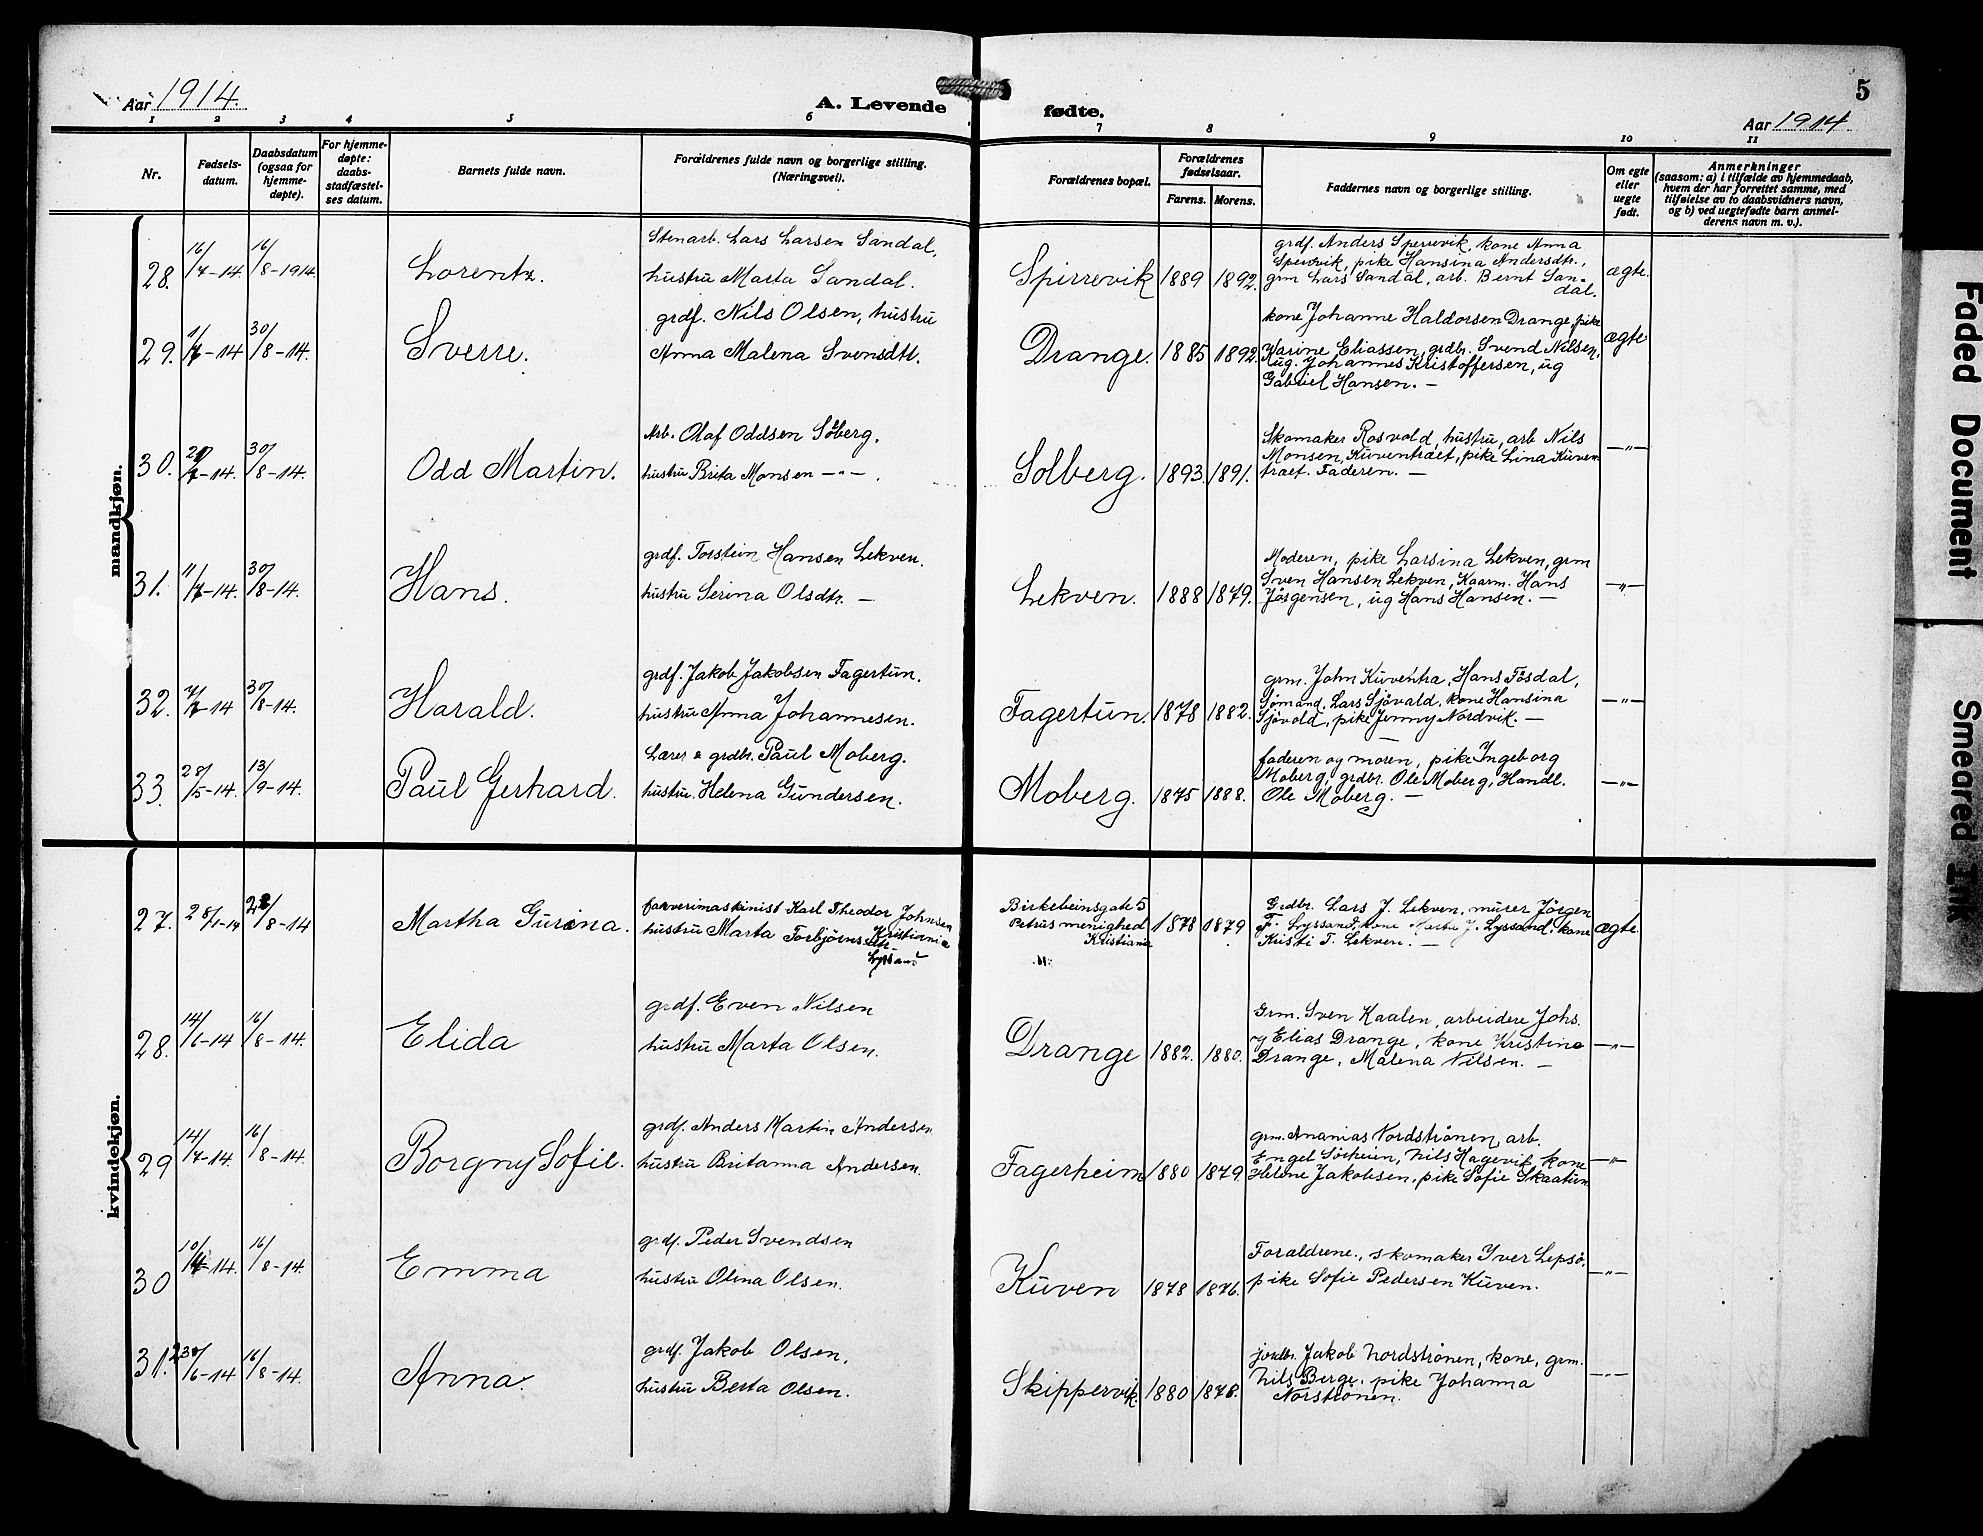 Aar 1914.
A. Levende
fødte.
5
Aar 1914
1 2 3 4 5 6 7 8 9 10 11
Nr.
Fødsels-
datum.
Daabsdatum
(ogsaa for
hjemme-
døpte).
For hjemme-
døpte:
daabs-
stadfæstel-
ses datum.
Barnets fulde navn.
Forældrenes fulde navn og borgerlige stilling.
(Næringsvei).
Forældrenes bopæl.
Forældrenes
fødselsaar.
Farens. Morens.
Faddernes navn og borgerlige stilling.
Om egte
eller
uegte
født.
Anmerkninger
(saasom: a) i tilfælde av hjemmedaab,
hvem der har forrettet samme, med
tilføielse av to daabsvidners navn,
og b) ved uegtefødte barn anmel-
derens navn m. v.).
mandkjøn.
28. 16/7-14 16/8-1914 Lorentz.
Stenarb. Lars Larsen Sandal,
hustru Marta Sandal.
Spirrevik 1889 1892.
grdf. Anders Sperrevik, kone Anna
Sperrvik, pike Hansina Andersdtr.,
grm Lars Sandal, arb. Bernt San-
dal.
ægte.
29. 1/7-14 30/8-14. Sverre.
grdf. Nils Olsen, hustru
Anna Malena Svensdtr.
Drange. 1885 1892.
kone Johanne Haldorsen Drange, pike
Karine Eliassen, grdbr. Svend Nilsen,
ug. Johannes Kristoffersen, ug
Gabriel Hansen. —
ægte
30. /7-14 30/8-14. Odd Martin.
Arb. Olaf Oddsen Søberg.
hustru Brita Monsen —"—.
Solberg. 1893. 1891.
Skomaker Rosvold, hustru, arb Nils
Monsen, Kuventræet, pike Lina Kuven-
træet. Faderen. —
—"—
31. 11/7-14. 30/8-14. Hans.
grdf. Torstein Hansen Lekven.
hustru Serina Olsdtr. —
Lekven. 1888 1879.
Moderen, pike Larsina Lekven, grm
Sven Hansen Lekven, Kaarm. Hans
Jørgensen, ug Hans Hansen. —
—"—
32. /7-14 30/8-14. Harald.
grdf. Jakob Jakobsen Fagertun.
hustru Anna Johannesen.
Fagertun. 1878 1882.
grm. John Kuventræ, Hans Fosdal,
Sømand. Lars Sjøvald, kone Hansina
Sjøvold, pike Jenny Nordvik. —
—"—
33. 28/5-14. 13/9-14. Paul Gerhard.
Lærer & grdbr. Paul Moberg.
hustru. Helena Gundersen.
Moberg. 1875 1888.
faderen og moren, pike Ingeborg
Moberg, grdbr. Ole Moberg, Handl.
Ole Moberg. —
—"—
kvindekjøn.
27. 28/1-14 /8-14 Martha Gurina.
farverimaskinist Karl Theodor Johnsen
Kristiania
hustru Marta Torbjørnsdtr.
Lyssand
Birkebeinsgate 5
Petrus menighed
Kristiania
1878 1879
Grdbr. Lars J. Lekven, murer Jørgen
F. Lyssand, kone Marta J. Lyssand. kone
Kristi T. Lekven. —
ægte.
28. 14/6-14 16/8-14. Elida
grdf. Even Nilsen
hustru Marta Olsen.
Drange 1882. 1880.
Grm. Sven Kaalen, arbeidere Johs.
og Elias Drange, kone Kristine
Drange, Malena Nilsen. —
—"—
29 14/7-14. 16/8-14. Borgny Sofie.
grdf. Anders Martin Andersen
hustru Britanna Andersen.
Fagerheim 1880 1879.
grm. Ananias Nordstrønen, arb.
Engel Sørheim, Nils Hagevik, kone
Helene Jakobsen, pike Sofie Skaatun
—"—
30 10/-14. 16/8-14. Emma
grdf. Peder Svendsen
hustru Olina Olsen.
Kuven 1878 1876.
Forældrene., skomaker Iver Lepsø,
pike Sofie Pedersen Kuven.
—"—
31. /6-14 16/8-14. Anna.
grdf. Jakob Olsen,
hustru Berta Olsen.
Skippervik. 1880 1878.
jordbr. Jakob Nordstrønen, kone, grm.
Nils Berge, pike Johanna
Norstrønen.
—"—
Faded Document
Smeared Ink